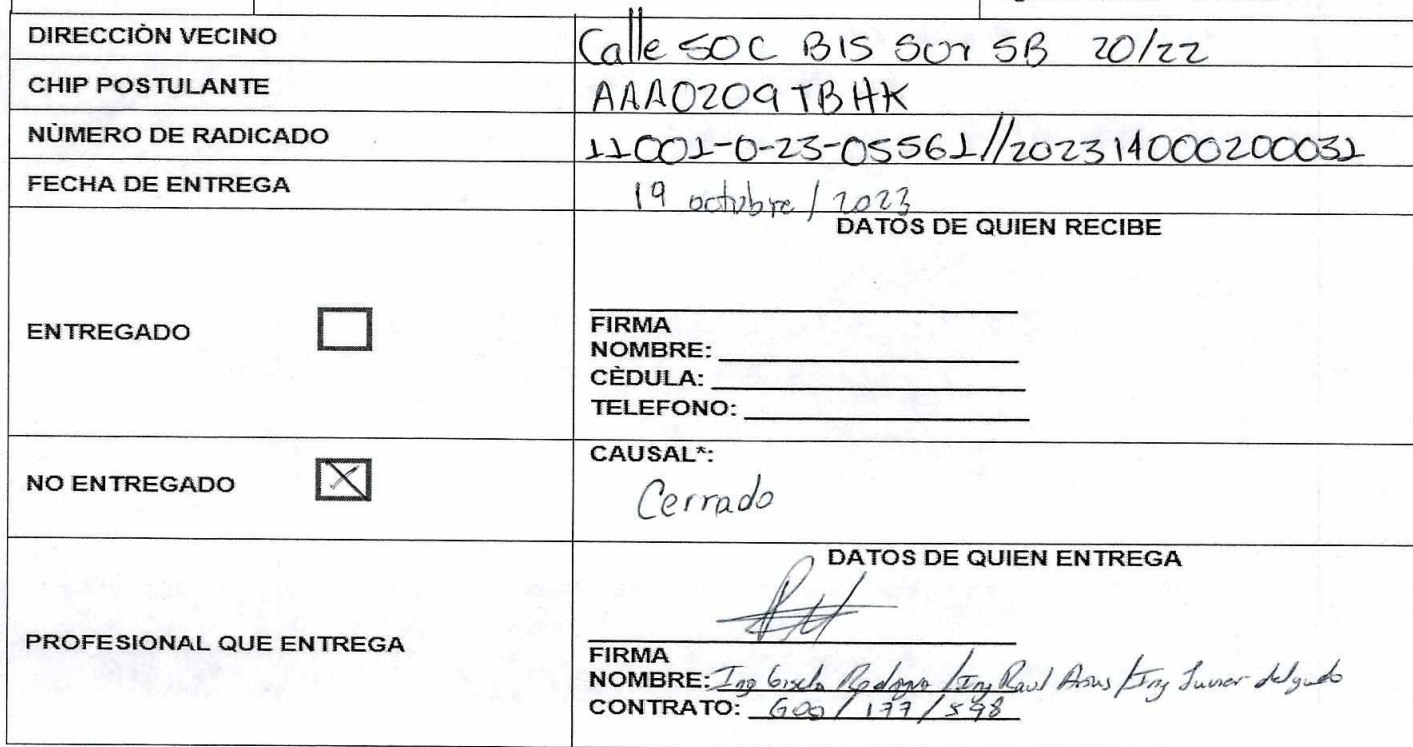 DIRECCIÒN VECINO
Calle 50C BIS Sur 5B 20/22
CHIP POSTULANTE
AAA0209TBHK
NÙMERO DE RADICADO
11001-0-23-05561//202314000200031
FECHA DE ENTREGA
19 octubre / 2023
DATOS DE QUIEN RECIBE
ENTREGADO
FIRMA
NOMBRE:
CÈDULA:
TELEFONO:
NO ENTREGADO
CAUSAL*:
Cerrado
DATOS DE QUIEN ENTREGA
PROFESIONAL QUE ENTREGA
FIRMA
NOMBRE: Ing Gisela / Ing Raul / Ing Junior delgado
CONTRATO: 600 / 177 / 598